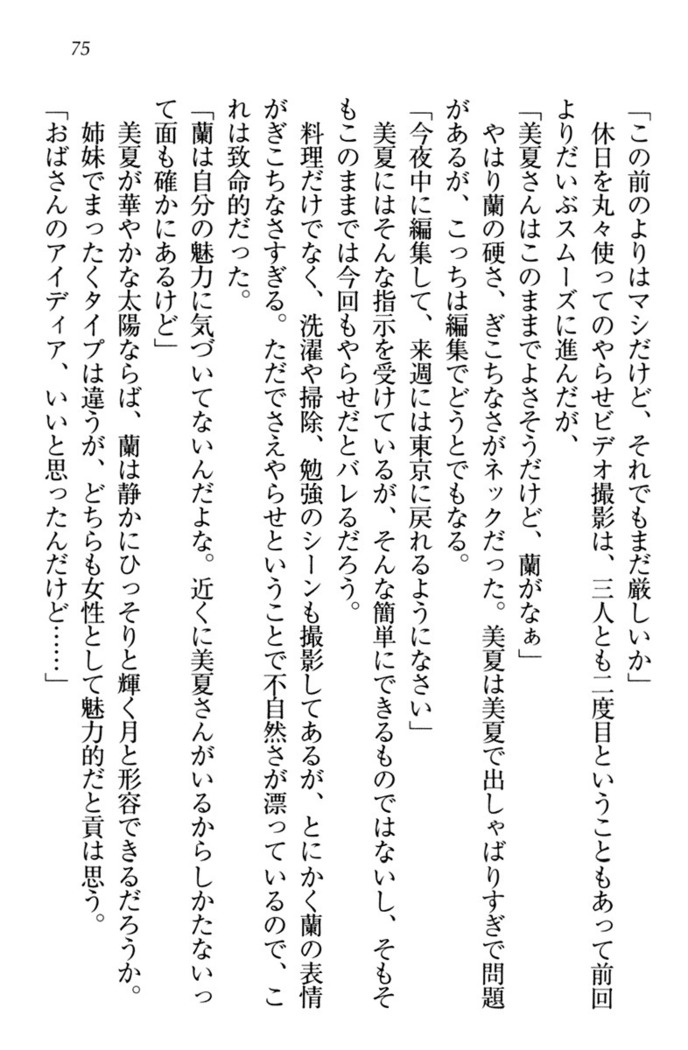 75
「この前のよりはマシだけど、それでもまだ厳しいか」
休日を丸々使ってのやらせビデオ撮影は、三人とも二度目ということもあって前回
よりだいぶスムーズに進んだが、
「美夏さんはこのままでよさそうだけど、蘭がなぁ」
やはり蘭の硬さ、ぎこちなさがネックだった。美夏は美夏で出しゃばりすぎで問題
があるが、こっちは編集でどうとでもなる。
「今夜中に編集して、来週には東京に戻れるようになさい」
美夏にはそんな指示を受けているが、そんな簡単にできるものではないし、そもそ
もこのままでは今回もやらせだとバレるだろう。
料理だけでなく、洗濯や掃除、勉強のシーンも撮影してあるが、とにかく蘭の表情
がぎこちなさすぎる。ただでさえやらせということで不自然さが漂っているので、こ
れは致命的だった。
「蘭は自分の魅力に気づいてないんだよな。近くに美夏さんがいるからしかたないっ
て面も確かにあるけど」
美夏が華やかな太陽ならば、蘭は静かにひっそりと輝く月と形容できるだろうか。
姉妹でまったくタイプは違うが、どちらも女性として魅力的だと貢は思う。
「おばさんのアイディア、いいと思ったんだけど……」